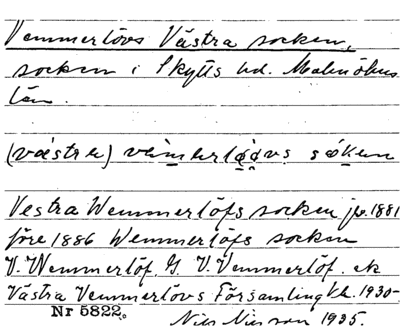 Vemmerlövs Västra socken,
socken i Skytts hd. Malmöhus
län.
(västra) vemmerlövs
Vestra Wemmerlöfs socken jb. 1881
före 1886 Wemmerlöfs socken
V. Wemmerlöf. G. V. Vemmerlöf. ek
Västra Vemmerlövs Församling kb. 1930-
Nr 5822.
Nils Nilsson 1935.